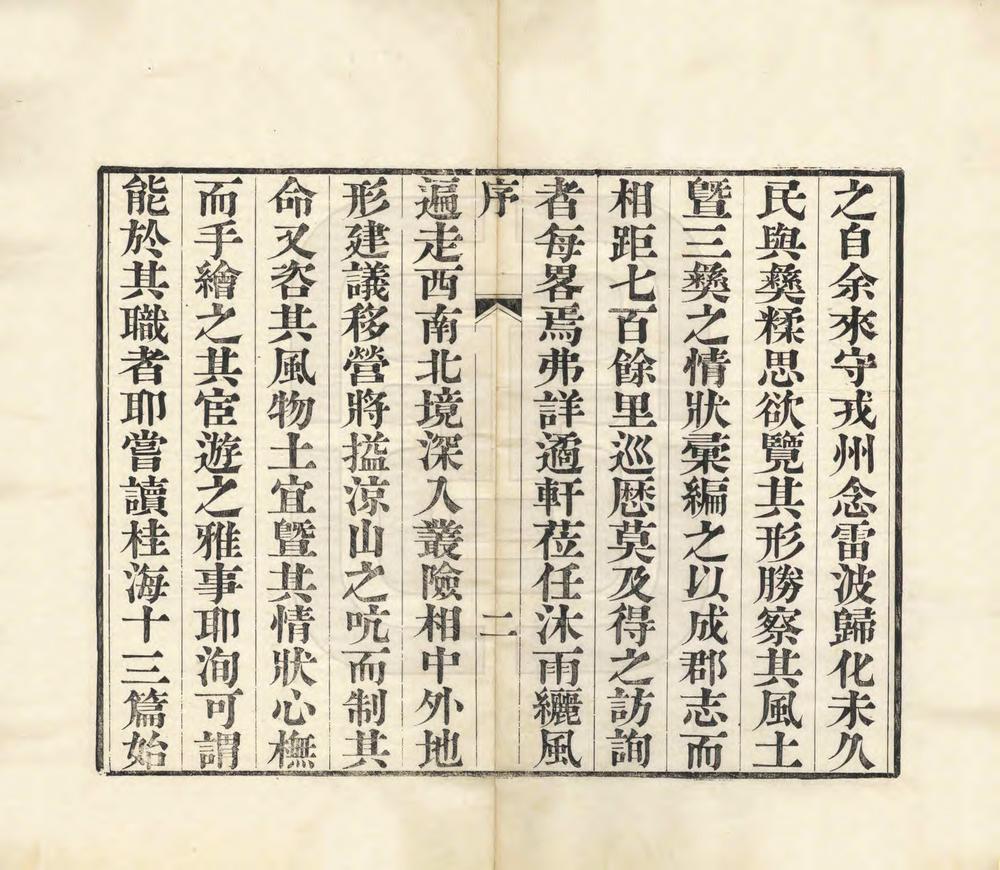 之自余來守戎州念雷波歸化未久
民與彜糅思欲覽其形勝察其風土
曁三彜之情狀彙編之以成郡志而
相距七百餘里巡歷莫及得之訪詢
者每畧焉弗詳適軒莅任沐雨纚風
序 二
遍走西南北境深入叢險相中外地
形建議移營將搤涼山之吭而制其
命又咨其風物土宜曁其情狀心橅
而手繪之其宦遊之雅事耶洵可謂
能於其職者耶嘗讀桂海十三篇始